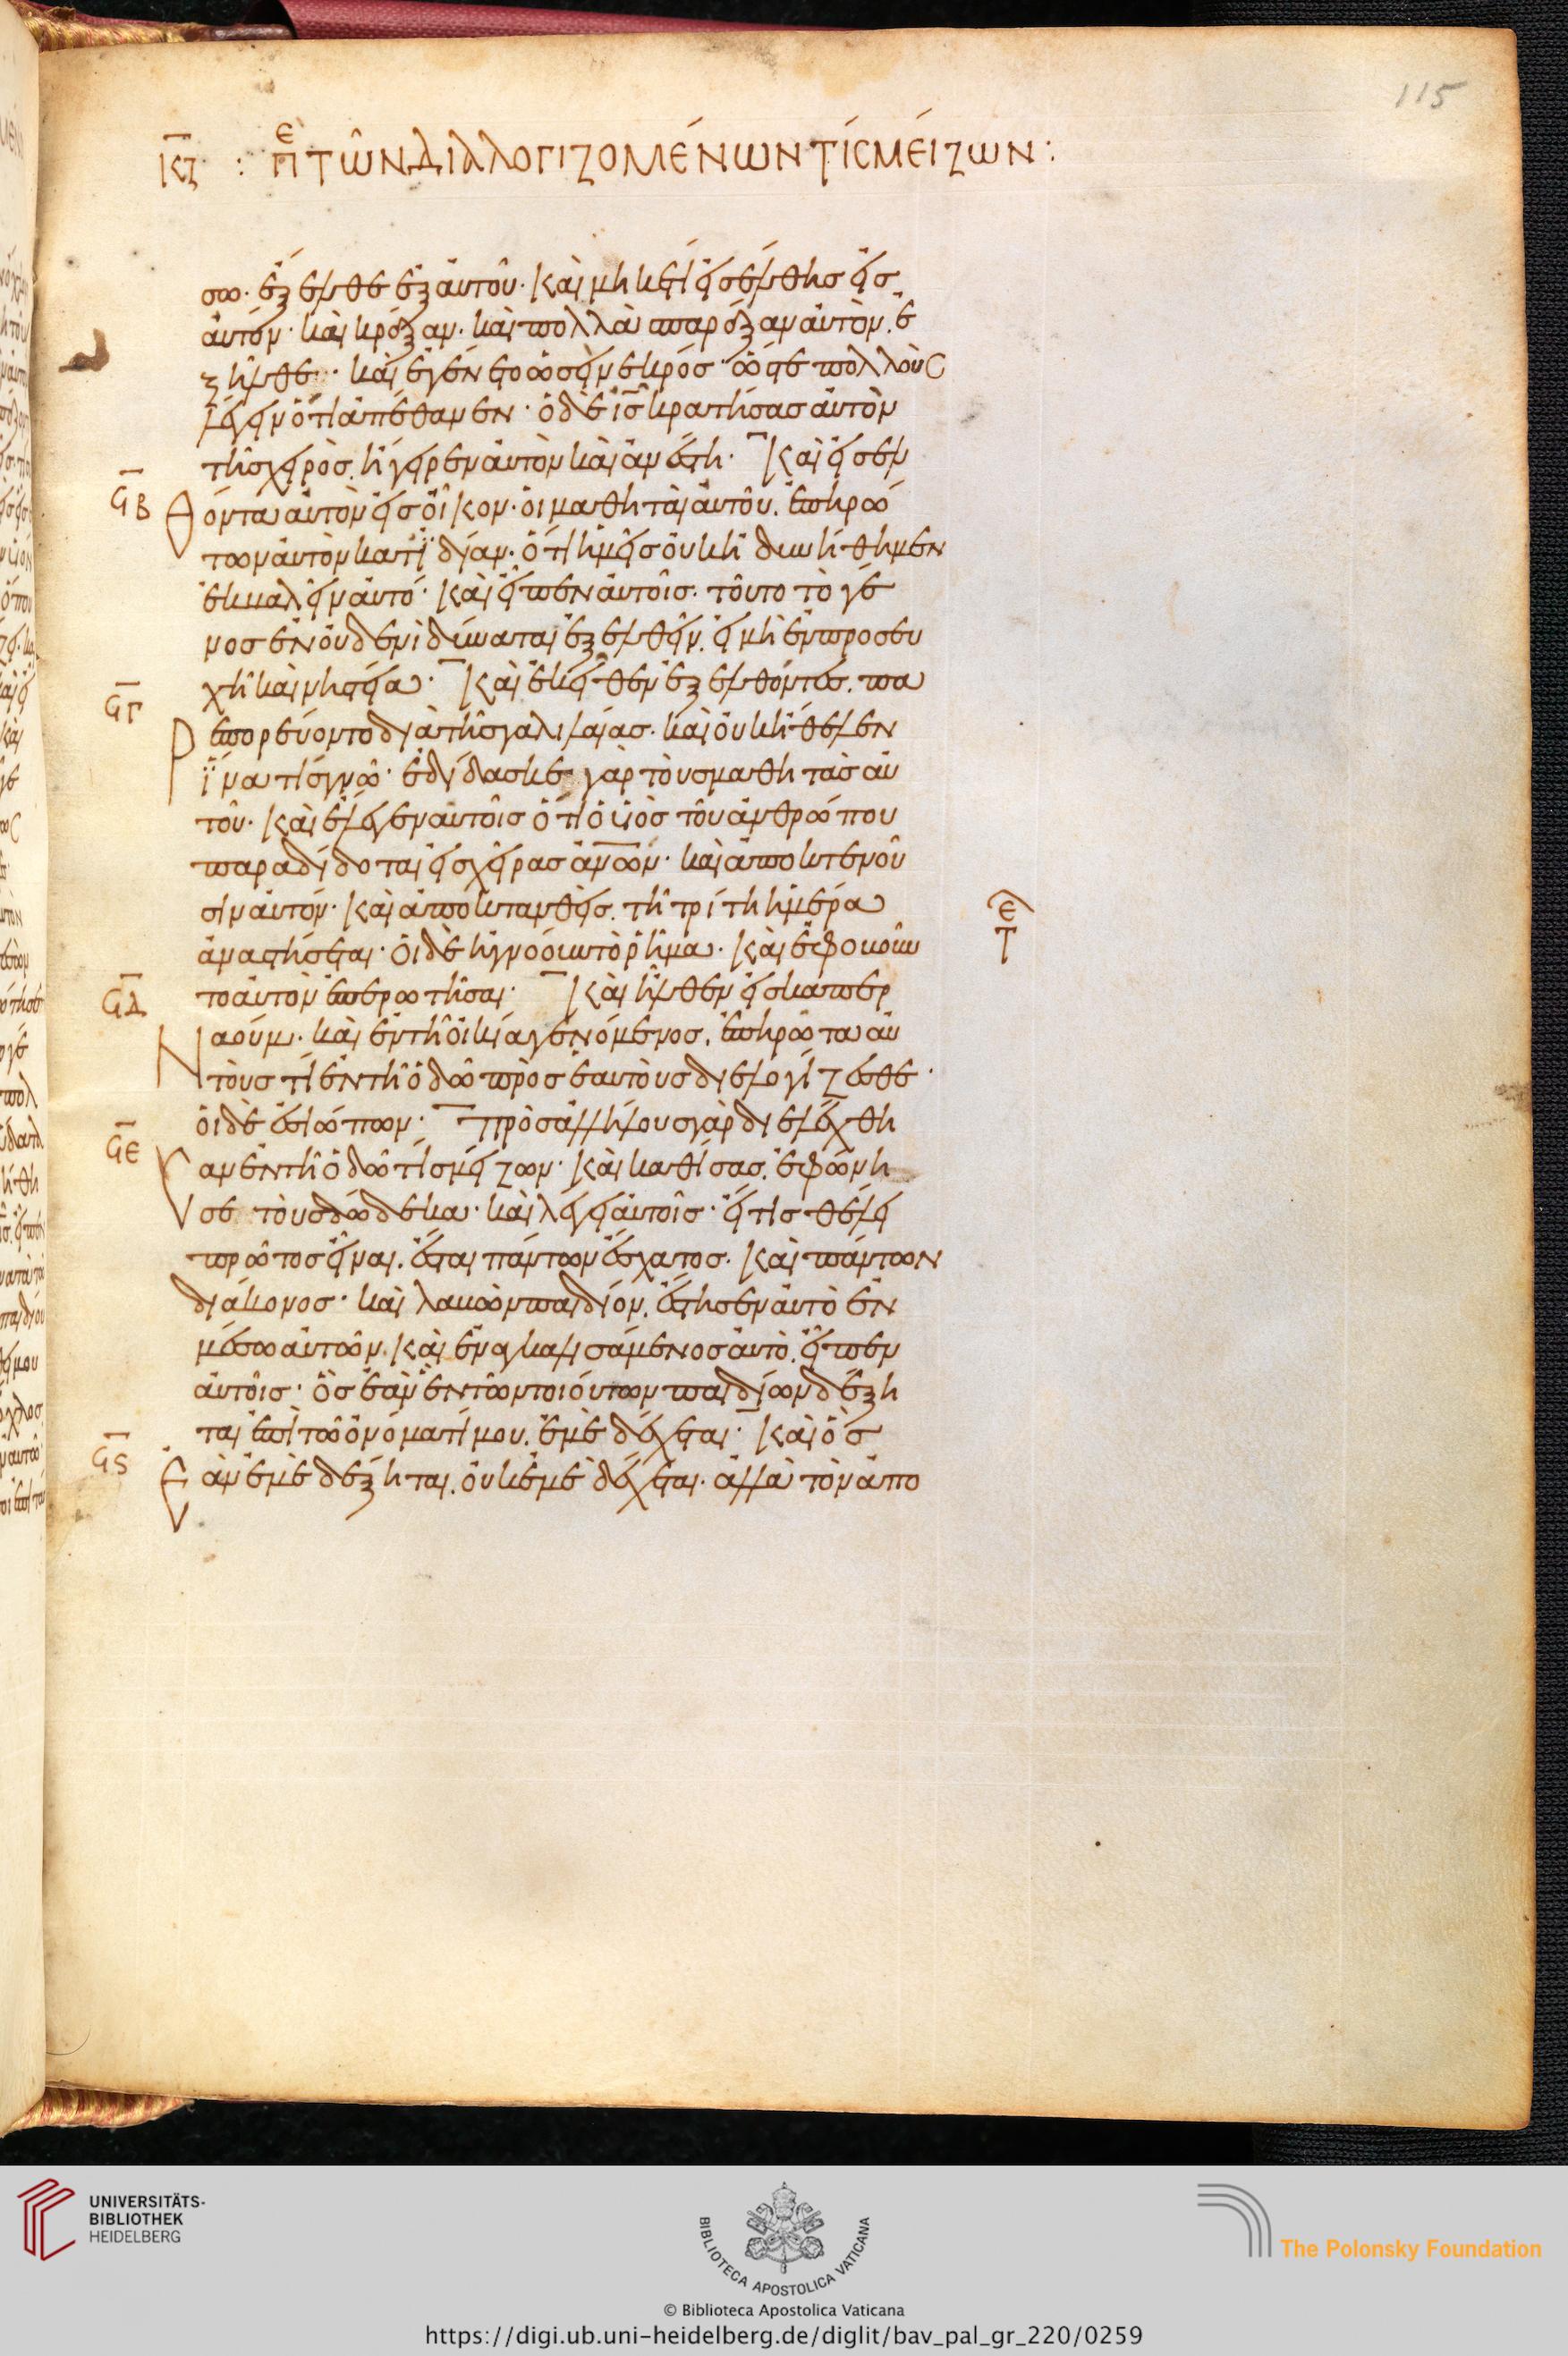 115
ΚΖ : ΠΕ ΤΩ͂Ν ΔΙΑΛΟΓΙΖΟΜΈΝΩΝ ΤΊC ΜΕΊΖΩΝ :
σω· ἔξελθε ἐξ αὐτοῦ· καὶ μηκέτι εἰσέλθης εἰσ
αὐτόν· καὶ κράξαν· καὶ πολλὰ σπαράξαν αὐτὸν. ἐ
ξῆλθε· καὶ ἐγένετο ὡσεὶ νεκρόσ· ὥστε πολλοὺς
λέγειν ὅτι ἀπέθανεν· ὁ δὲ ις κρατήσασ αὐτὸν
τῆσ χειρὸσ. ἤγειρεν αὐτὸν καὶ ἀνέστη· Καὶ εἰσελ
ϟΒ
θόντα αὐτὸν εἰσ οἶκον· οἱ μαθηταὶ αὐτοῦ. ἐπηρώ
των αὐτὸν κατϊδίαν· ὅτι ἡμεῖσ οὐκ ἠδυνήθημεν
ἐκβαλεῖν αὐτό· καὶ εἶπεν αὐτοῖσ· τοῦτο τὸ γέ
νοσ ἐν οὐδενὶ δύναται ἐξελθεῖν. εἰ μὴ ἐν προσευ
χῆ καὶ νηστεία· Καὶ ἐκεῖθεν ἐξελθόντεσ. πα
ϟΓ
ρεπορεύοντο διὰ τῆσ γαλιλαίασ· καὶ οὐκ ἤθελεν
ἵνα τὶσ γνῶ· ἐδίδασκε γὰρ τοὺσ μαθητὰσ αὐ
τοῦ· καὶ ἔλεγεν αὐτοῖσ ὅτι ὁ υἱὸσ τοῦ ἀνθρώπου
παραδίδοται εἰσ χεῖρασ ἀνων· καὶ ἀποκτενοῦ
σιν αὐτόν· καὶ ἀποκτανθεὶσ. τῆ τρίτη ἡμέρα
ἀναστήσεται· οἱ δὲ ἠγνόουν τὸ ῥῆμα· καὶ ἐφοβοῦν
ΤΕ
το αὐτὸν ἐπερωτῆσαι· Καὶ ἦλθεν εἰσ καπερ
ϟΔ
ναούμ· καὶ ἐν τῆ οἰκία γενόμενοσ. ἐπηρώτα αὐ
τοὺσ τί ἐν τῆ ὁδῶ πρὸσ ἑαυτοὺσ διελογίζεσθε·
οἱ δὲ ἐσιώπων· Πρὸσ ἀλλήλουσ γὰρ διελέχθη
ϟΕ
σαν ἐν τῆ ὁδῶ τίσ μείζων· καὶ καθίσασ. ἐφώνη
σε τοὺσ δώδεκα· καὶ λέγει αὐτοῖσ· εἴ τισ θέλει
πρῶτοσ εἶναι. ἔσται πάντων ἔσχατοσ· καὶ πάντων
διάκονοσ· καὶ λαβὼν παιδίον. ἔστησεν αὐτὸ ἐν
μέσω αὐτῶν· καὶ ἐναγκαλισάμενοσ αὐτὸ. εἶπεν
αὐτοῖσ· ὃσ ἐὰν ἐν τῶν τοιούτων παιδίων δέξη
ται ἐπὶ τῶ ὀνόματί μου. ἐμὲ δέχεται· Καὶ ὃσ
ϟϚ
ἐὰν ἐμὲ δέξηται. οὐκ ἐμὲ δέχεται· ἀλλὰ τὸν ἀπο
UNIVERSITÄTS-
BIBLIOTHEK
HEIDELBERG
BIBLIOTECA APOSTOLICA VATICANA
The Polonsky Foundation
© Biblioteca Apostolica Vaticana
https://digi.ub.uni-heidelberg.de/diglit/bav_pal_gr_220/0259